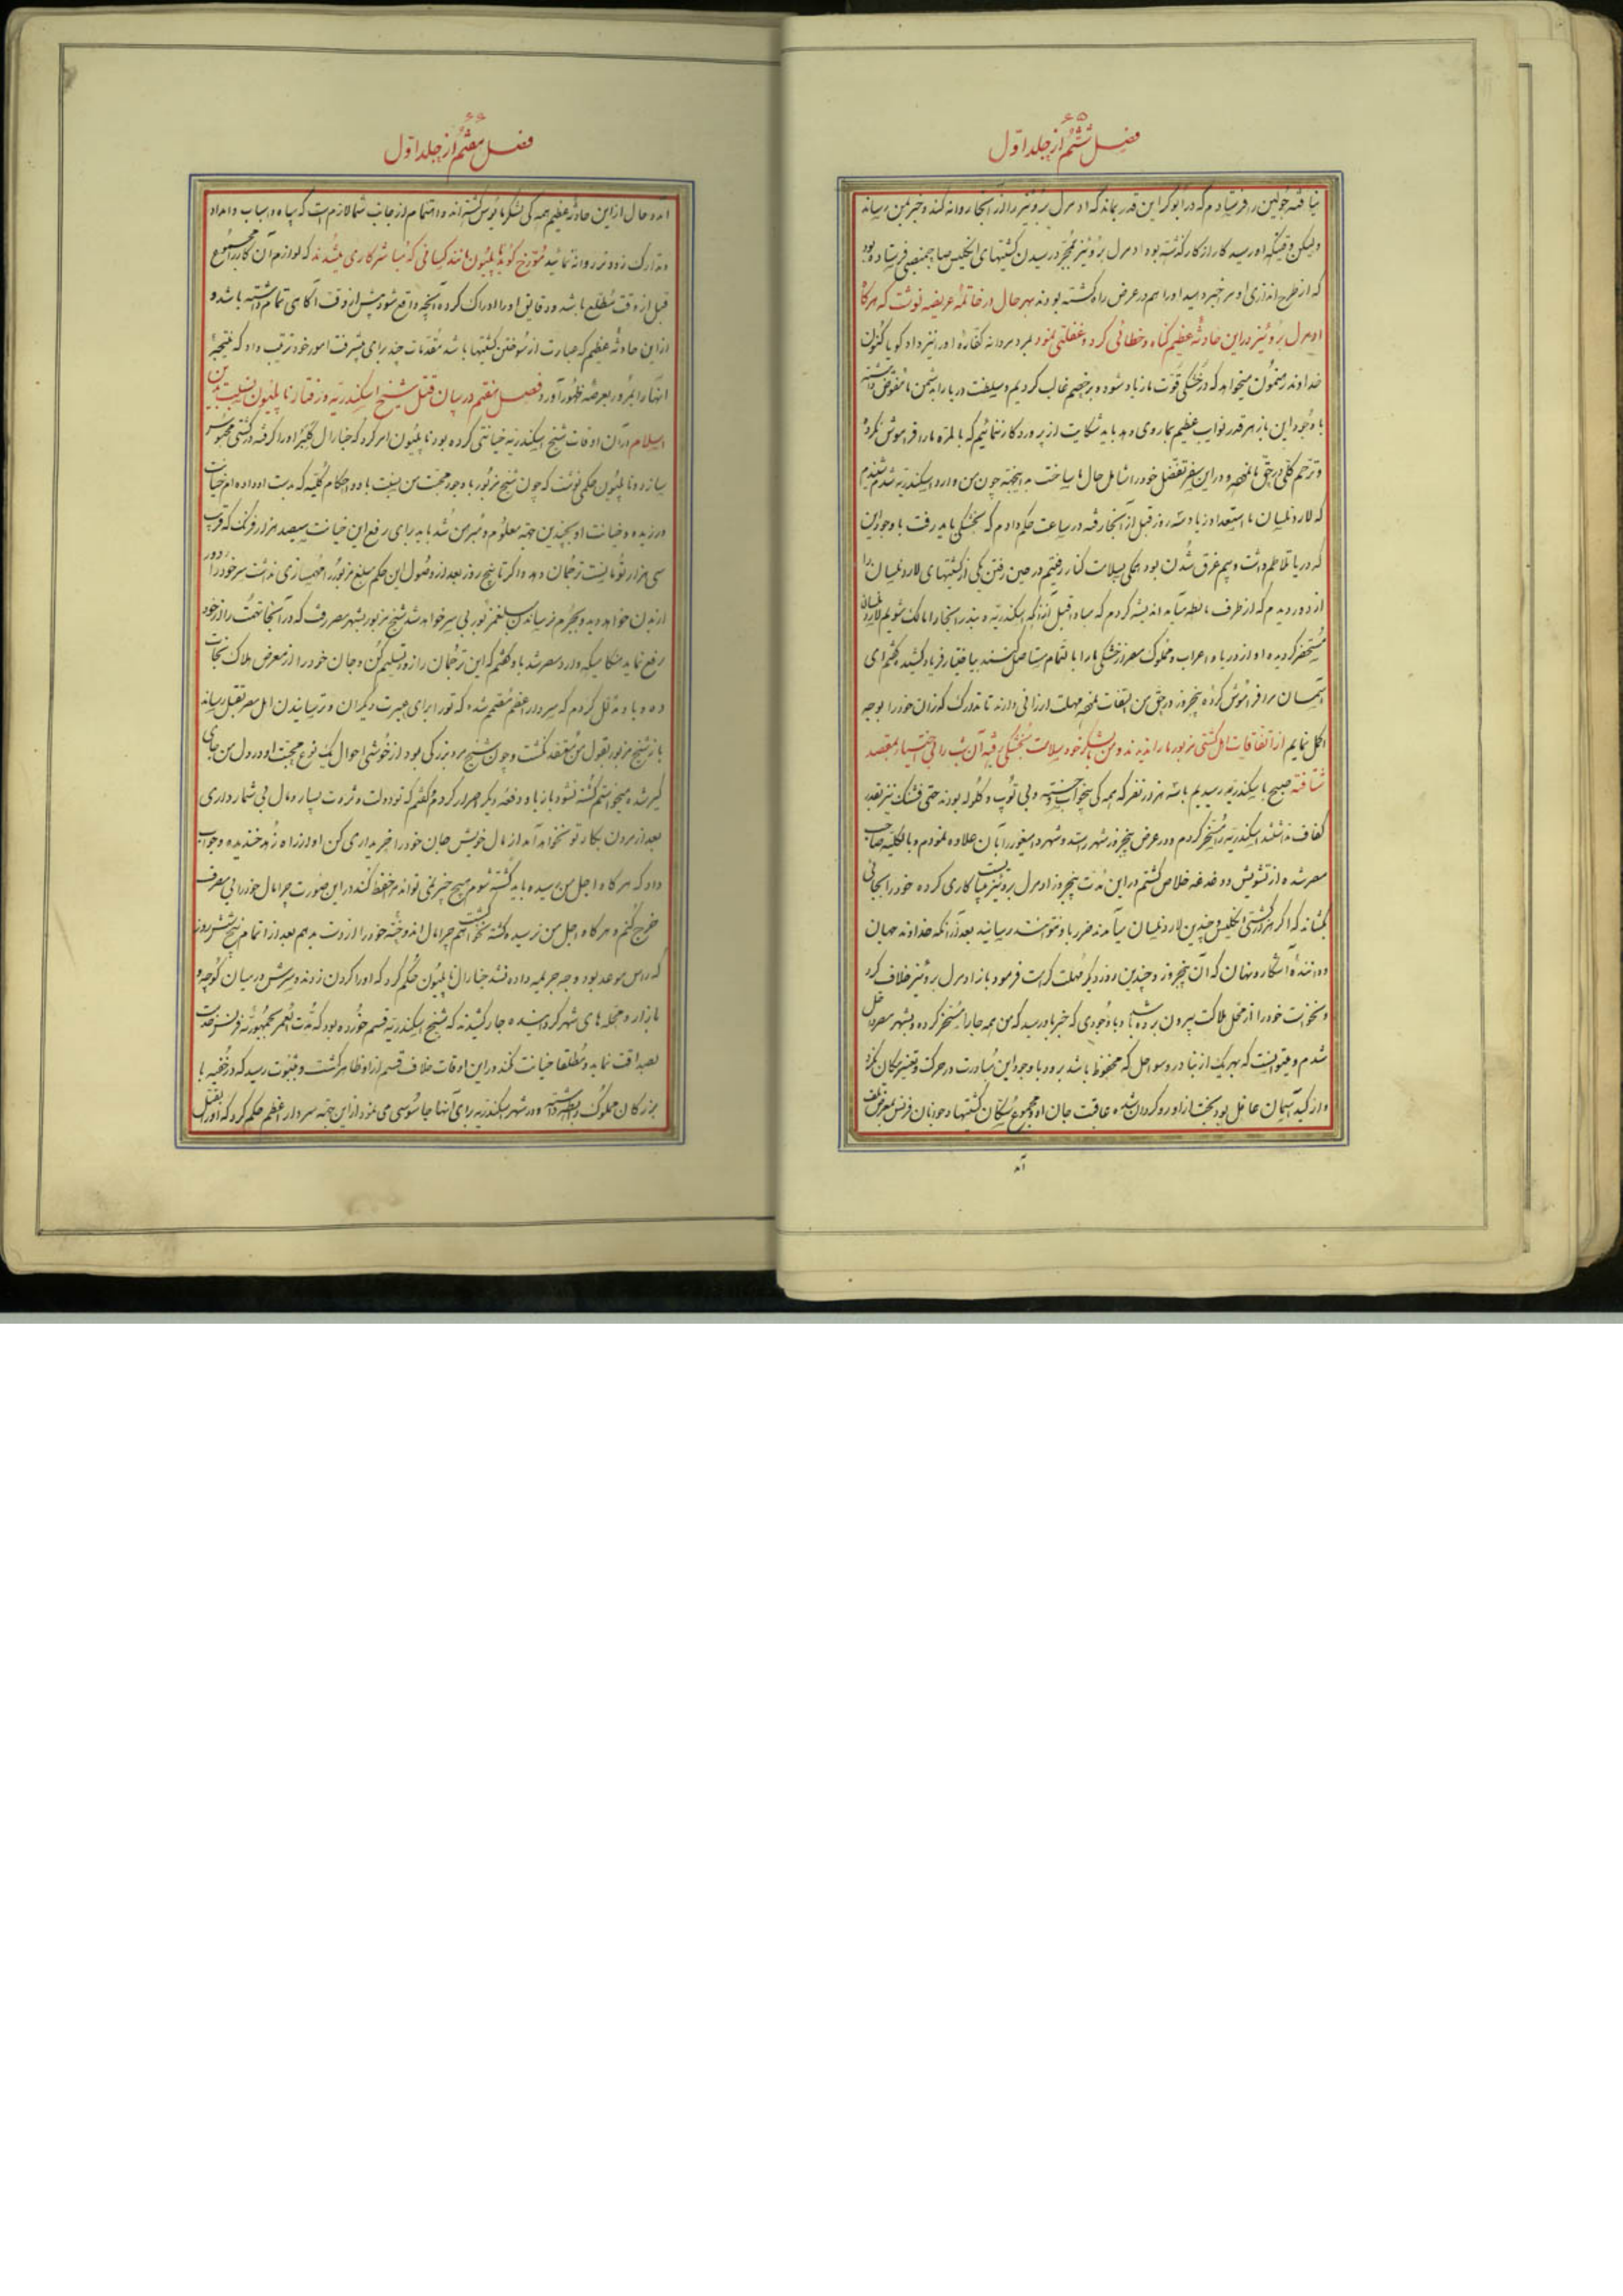 ۶۵
فصل ششم از جلد اول
نیافته جولین را فرستادم که در ابوکر این قدر بماند که ادمرل برونیز را از آنجا روانه کند و خبر بمن رساند
ولیکن وقتیکه او رسید کار از کار گذشته بود ادمرل برونیز بمجرد رسیدن کشتیهای انگلیس صاحبمنصبی فرستاده بود
که از طرح اندازی او مرا خبر دهید او را هم در عرض راه کشته بودند بهر حال در خاتمهٔ عریضه نوشت که هرگاه
ادمرل برونیز در این حادثهٔ عظیم گناه و خطائی کرد و غفلتی نمود بمرد مردانه کفارهٔ او را نیز داد گویا کنون
خداوند بیچون میخواهد که در خشکی قوت ما زیاد شود و بر خصم غالب گردیم و سلطنت دریا را بدشمن ما مفوض داشته
با وجود این باز هر قدر نوایب عظیم بما روی دهد باید شکایت از پروردگار ننمائیم که بالمره ما را فراموش نکرده
و ترحم کلی در حق ما نموده و در این سفر تفضل خود را شامل حال ما ساخت به اینجهة چون من وارد اسکندریه شدم شنیدم
که لارد نلسان با استعداد زیاد سه روز قبل از آنجا رفته در ساعت حکم دادم که بخشکی باید رفت با وجود این
که دریا تلاطم داشت و بیم غرق شدن بود همگی بسلامت کنار رفتیم در حین رفتن یکی از کشتیهای لارد نلسان را
از دور دیدم که از طرف مالطه میآید اندیشه کردم که مبادا قبل از آنکه اسکندریه و بندر آنجا را مالک شویم لارد نلسان
مستحضر گردیده او از دریا و اعراب و مملوک مصر از خشکی ما را بالتمام مستاصل کنند بی اختیار فریاد کشیده گفتم ای
آسمان مرا فراموش کرده پنجروز در حق من التفات نموده مهلت ارزانی دارند تا تدارک گذران خود را بوجه
اکمل نمایم از اتفاقات اهل کشتی مزبور ما را ندیدند و من با لشکر خود بسلامت بخشکی رفته آن شب را بی اختیار بمقصد
شتافته صبح باسکندریه رسیدیم با سه هزار نفر که همگی بیخواب و خسته و بی توپ و گلوله بودند حتی فشنگ نیز بقدر
کفاف نداشتند اسکندریه را مسخر کردم و در عرض پنجروز شهر رشد و شهر دمنهور را بآن علاوه نمودم و بالکلیه صاحب
مصر شده از تشویش و دغدغه خلاص گشتم در این مدت پنجروز ادمرل برونیز میبایست کاری کرده خود را بجائی
بکشاند که اگر هزار کشتی انگلیس و چندین لارد نلسان میآمدند ضرر باو نتوانستند رسانید بعد از آنکه خداوند جهان
و دانندهٔ آشکار و نهان که آن پنجروز و چندین روز دیگر مهلت کرامت فرمود باز ادمرل برونیز خلاف کرد
و نخواست خود را از محل هلاکت بیرون برده باشد تا با وجودی که خبر باو رسید که من همه جا را مسخر کرده و بشهر مصر داخل
شدم و میتوانست که بهر یک از بنادر و سواحل که محفوظ باشد برود با وجود این مبادرت در حرکت و تغییر مکان نکرد
و از کید آسمان غافل بود بخت از او روگردان شده عاقبت جان او و مجموع سکان کشتیها و جوانان فرنس بمعرض تلف
آمد
۶۶
فصل هفتم از جلد اول
آمد و حال از این حادثه عظیم همه گی لشکر مایوس گشته اند و اهتمام از جانب شما لازم است که سپاه و اسباب و امداد
و تدارک زودتر روانه نمائید مورخ گوید ناپلیون مانند کسانی که مباشر کاری میشدند که لوازم آن کار را مجموع
قبل از وقت مطلع باشد و دقایق او را ادراک کرده و آنچه واقع شود پیش از وقت آگاهی تمام داشته باشد و
از این حادثه عظیم که عبارت از سوختن کشتیها باشد مقدمات چند برای پیشرفت امور خود ترتیب داد که نتیجهٔ
آنها را بمرور بعرصه ظهور آورد فصل هفتم در بیان قتل شیخ اسکندریه و رفتار ناپلیون نسبت بدین
اسلام در آن اوقات شیخ اسکندریه خیانتی کرده بود ناپلیون امر کرد که جنارال کلبر او را گرفته در کشتی محبوس
سازد و ناپلیون حکمی نوشت که چون شیخ مزبور با وجود محبت من نسبت باو و احکام کلیه که بدست او داده ام خیانت
ورزیده و خیانت او بچندین جهة معلوم و مبرهن شد باید برای رفع این خیانت سیصد هزار فرنک که قریب
سی هزار تومانیست ترجمان دهد و اگر تا پنج روز بعد از وصول این حکم مبلغ مزبور را مهیا سازی نداشت سر خود را دور
از بدن خواهد دید و بجرم نرساندن مبلغ مزبور بی سر خواهد شد شیخ مزبور بشهر مصر رفت که در آنجا تهمت را از خود
رفع نماید هنگامیکه وارد مصر شد باو گفتم که این ترجمان را زود تسلیم کن و جان خود را از معرض هلاک نجات
ده و باو نقل کردم که سردار اعظم مصمم شده که تو را برای عبرت دیگران و ترسانیدن اهل مصر بقتل رساند
باز شیخ مزبور بقول من معتقد نگشت و چون شیخ مرد بزرگی بود از خوشی احوال یک نوع محبت او در دل من جای
گیر شده میخواستم کشته نشود باز باو دفعه دیگر اصرار کردم و گفتم که تو دولت و ثروت بسیار و مال بی شمار داری
بعد از مردن بکار تو نخواهد آمد از مال خویش جان خود را خریداری کن او از راه زهد خندیده و جواب
داد که هرگاه اجل من رسیده باید کشته شوم هیچ چیز نمی تواند مرا حفظ کند در این صورت چرا مال خود را بی مصرف
خرج کنم و هرگاه اجل من نرسیده کشته نخواهم گشت چرا مال اندوخته خود را از دست بدهم بعد از اتمام پنج شش روز
که راس موعد بود و وجه جریمه داده نشد جنارال ناپلیون حکم کرد که او را گردن زدند و سرش در میان کوچه و
بازار و محله های شهر گردانیده جار کشیدند که شیخ اسکندریه قسم خورده بود که مدت العمر بجمهوریه فرنس خدمت
بصداقت نماید و مطلقا خیانت نکند در این اوقات خلاف قسم از او ظاهر گشت و بثبوت رسید که در خفیه با
بزرگان مملوک رابطه داشته و در شهر اسکندریه برای آنها جاسوسی می نمود از این جهة سردار اعظم حکم کرد که او را بقتل